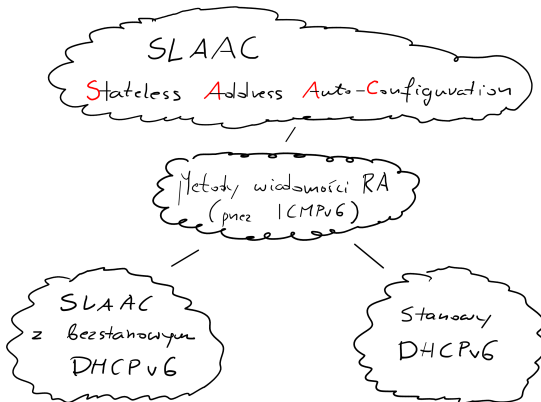 SLAAC
Stateless Address Auto-Configuration
Metody wiadomości RA
(przez ICMPv6)
SLAAC
z bezstanowym
DHCPv6
Stanowy
DHCPv6